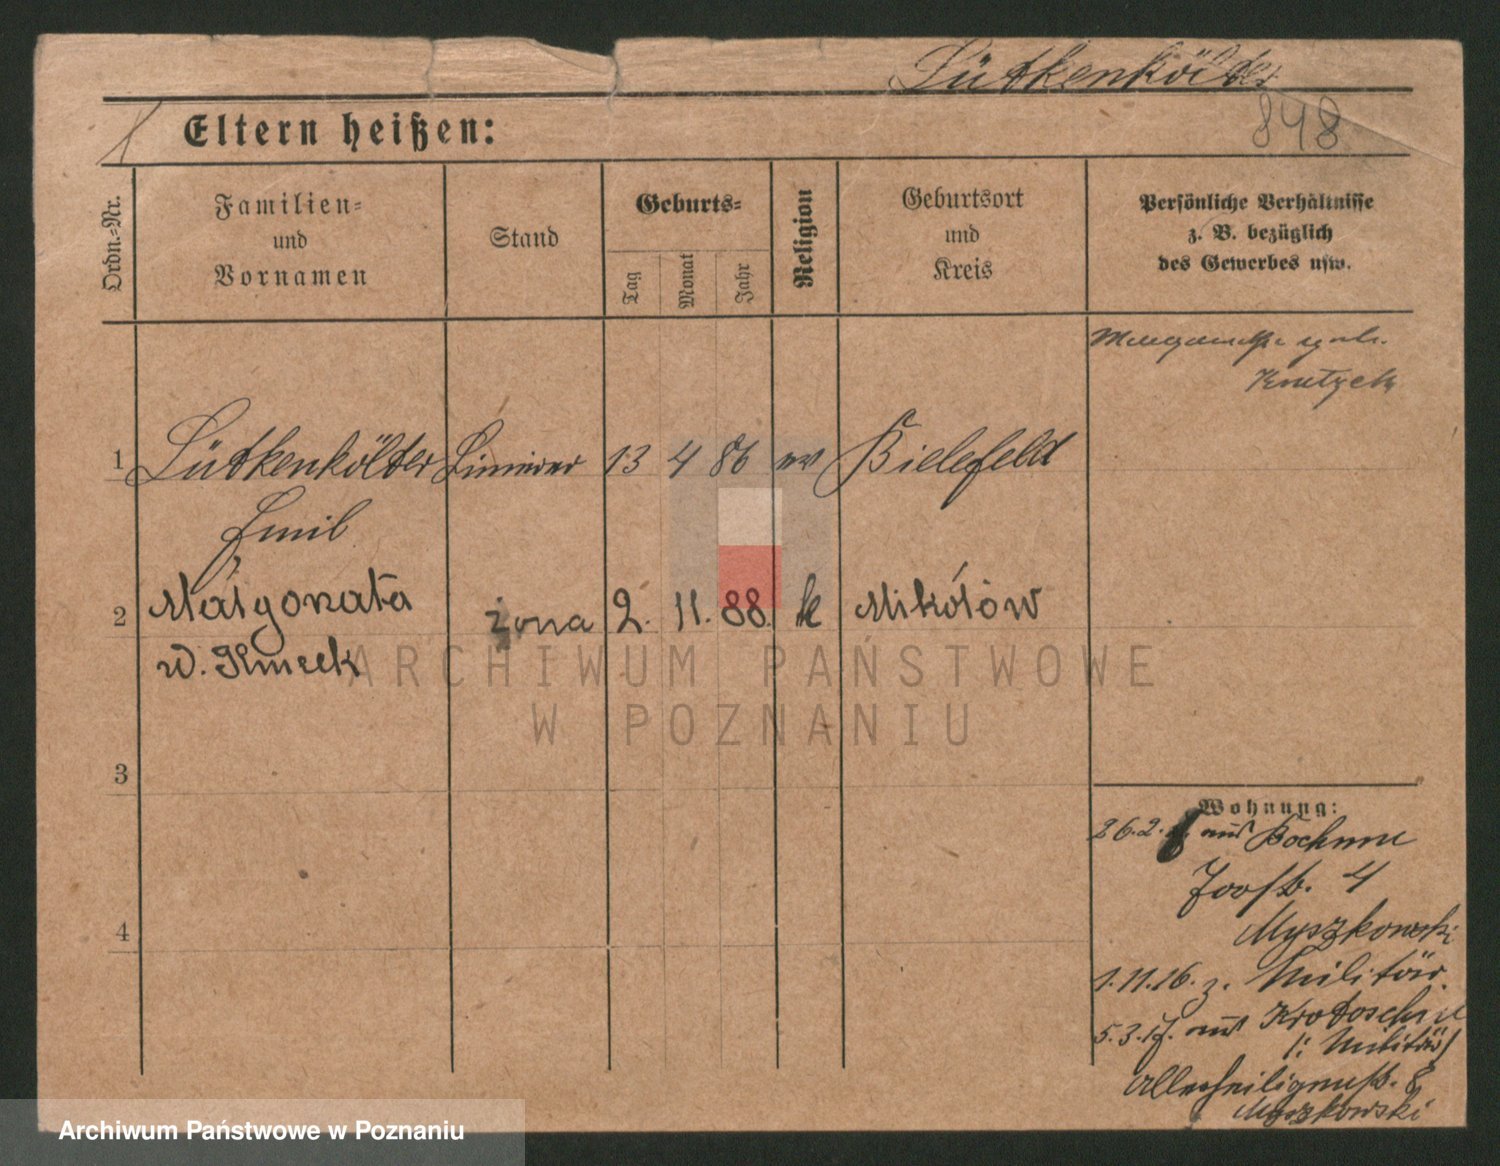 Lütkenkölter
848
Eltern heißen:
Ordn.-Nr.
Familien-
und
Vornamen
Stand
Geburts-
Tag
Monat
Jahr
Religion
Geburtsort
und
Kreis
Persönliche Verhältnisse
z. B. bezüglich
des Gewerbes usw.
1 Lütkenkölter 13 4 86 ev Bielefeld
Emil
2 Małgorzata żona 2. 11. 88. k Mikołów
w. Kmeck
3
4
Wohnung:
26.2. aus Bochum
4
Myszkowski
1.11.16. z. Militär.
5.3.17. aus Krotoschin
/: Militär/
Allerheiligenstr. 8
Myszkowski
ARCHIWUM PAŃSTWOWE
W POZNANIU
Archiwum Państwowe w Poznaniu